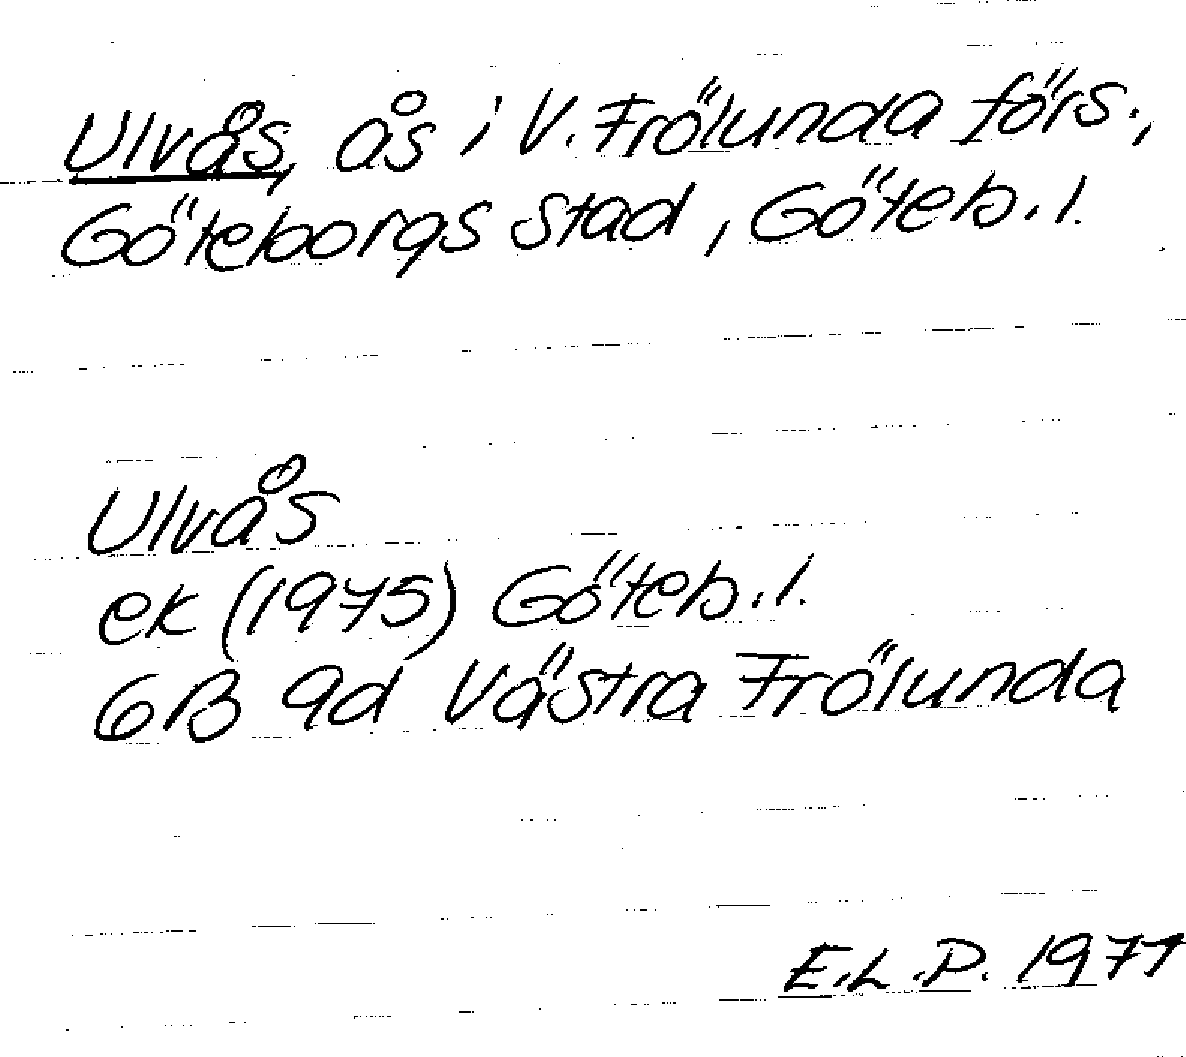 Ulvås, ås i V. Frölunda förs.,
Göteborgs stad, Göteb. l.
Ulvås
ek (1975) Göteb. l.
6B 9d Västra Frölunda
E.L.P. 1977